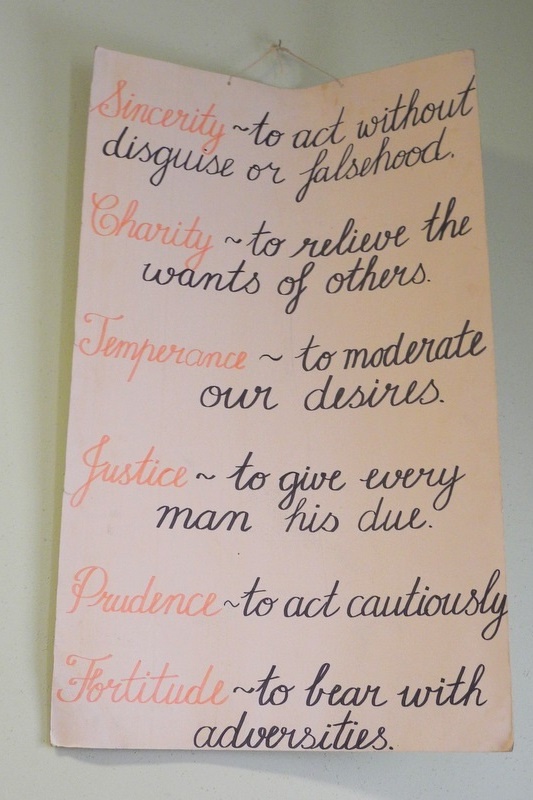 Sincerity ~ to act without
disguise or falsehood.
Charity ~ to relieve the
wants of others.
Temperance ~ to moderate
our desires.
Justice ~ to give every
man his due.
Prudence ~ to act cautiously
Fortitude ~ to bear with
adversities.